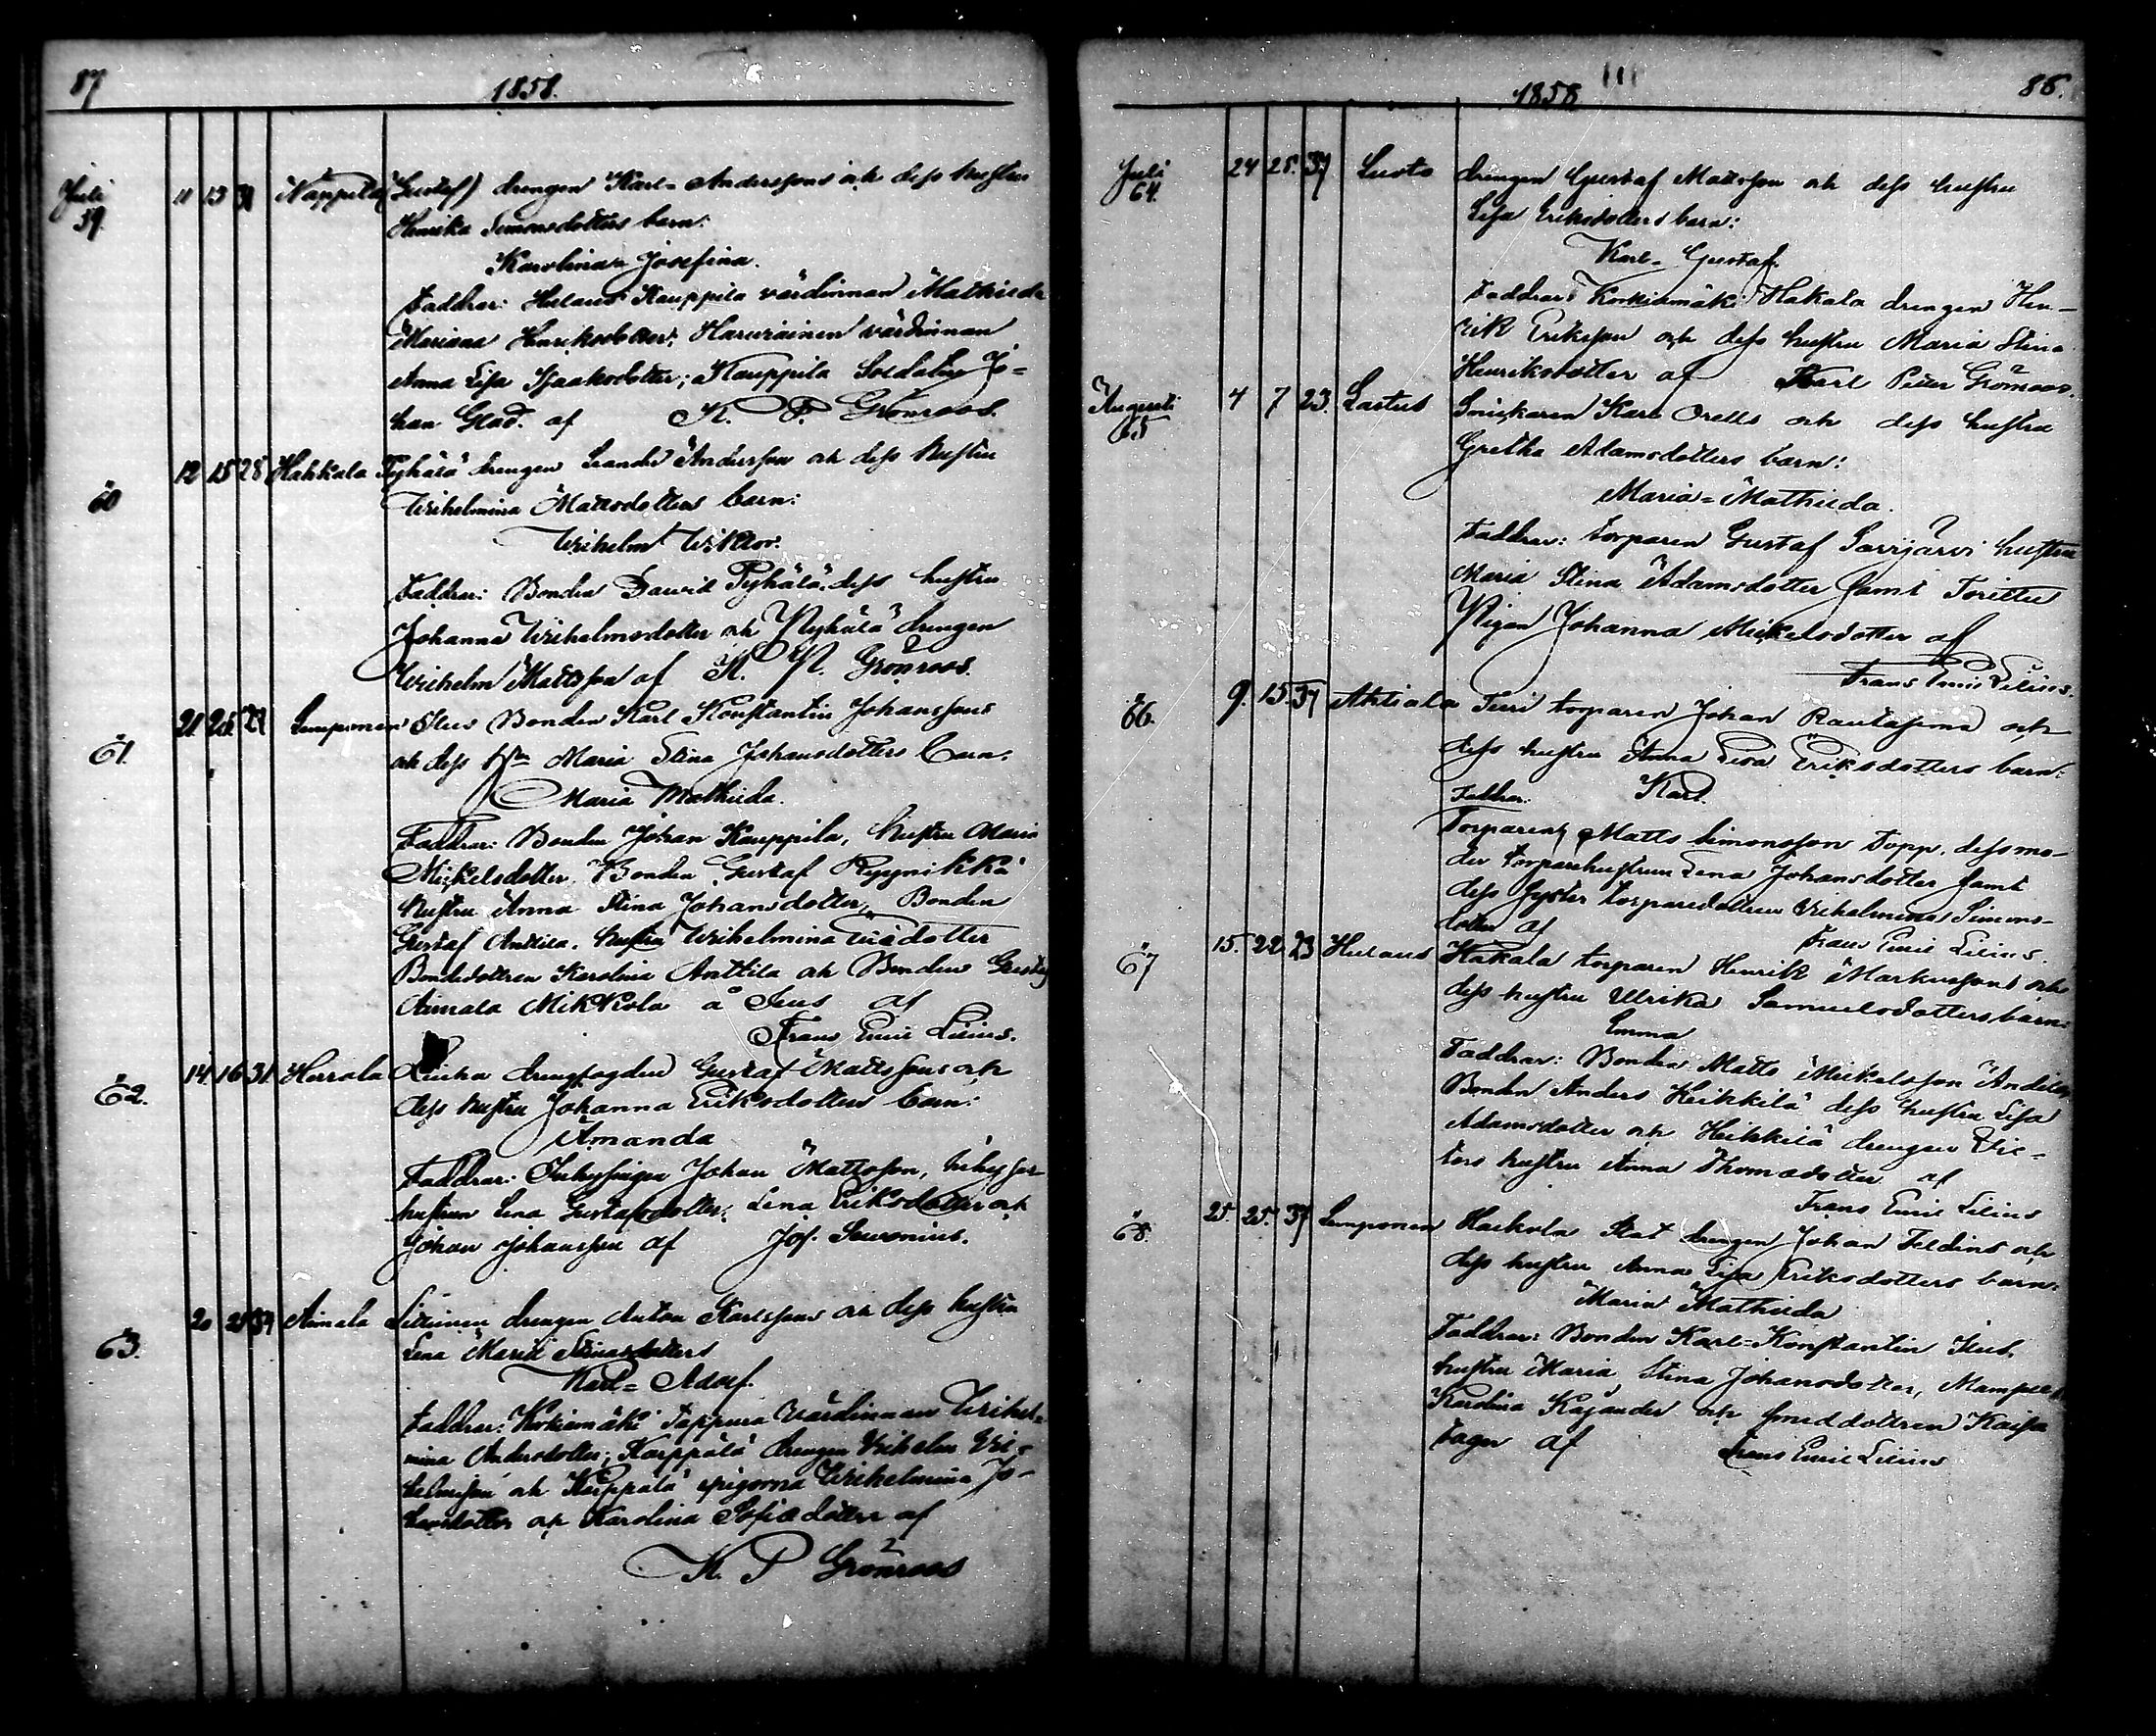 87
1858.
Juli 59. 11 13 31 Nappila (Gustaf) drengen Karl Anderssons och dess hustru
Henrika Simonsdotters barn:
Karolina Josefina.
Faddrar: Hulaus Kauppila värdinnan Mathilda
Mariana Henriksdotter; värdinnan
Anna Lisa Isaaksdotter; Kauppila Soldaten Jo=
han Glad. af K. P. Grönroos.
60 12 15 28 Hakkala Pyhälä drengen Leander Andersson och dess hustru
Wilhelmina Mattsdotters barn:
Wilhelm Wiktor.
Faddrar: Bonden David Pyhälä, dess hustru
Johanna Wilhelmsdotter och Pyhälä drengen
Wilhelm Mattsson af K. P. Grönroos.
61. 21 25 29 Lemponen Ilus Bonden Karl Konstantin Johanssons
och dess Hu Maria Stina Johansdotters barn.
Maria Mathilda.
Faddrar: Bonden Johan Kauppila, hustru Maria
Mickelsdotter, Bonden Gustaf Ryynikkä
hustru Anna Stina Johansdotter, Bonden
Gustaf Anttila, hustru Wilhelmina
Bondedottren Karolina Anttila och Bonden Gustaf
Aimala Mikkola å Ilus af
Frans Emil Lilius.
62. 14 16 31 Herrala drengfogden Gustaf Mattssons och
dess hustru Johanna Eriksdotters barn:
Amanda
Faddrar: Inhysingen Johan Mattsson, inhyses
hustrun Lena Gustafsdotter, Lena Eriksdotter och
Johan Johansson af Jos. Sevonius.
63. 20 25 39 Aimala drengen Anton Karlssons och dess hustru
Lena Maria
Karl=Adolf.
Faddrar: Tappura värdinnan Wilhel=
mina Andersdotter; Karppälä drengen Wilhelm Wil=
helmsson och Karppälä pigorna Wilhelmina Jo-
hansdotter och Karolina dotter af
K. P Grönroos
1858
88.
Juli 64. 24 25. 37 Lusto drengen Gustaf Mattsson och dess hustru
Lisa Eriksdotters barn:
Karl=Gustaf.
Faddrar: Korkiamäki Hakala drengen Hen-
rik Eriksson och dess hustru Maria Stina
Henriksdotter af Karl Peter Grönroos.
Augusti 65 4 7 23. Lastus Snickaren Karl Orells och dess hustru
Gretha Adamsdotters barn:
Maria=Mathilda.
Faddrar: torparen Gustaf Savijärvi hustru
Maria Stina Adamsdotter samt
Pigan Johanna Mickelsdotter af
Frans Emil Lilius.
66. 9. 15. 37 Ahtiala Turi torparen Johan och
dess hustru Anna Lisa Eriksdotters barn:
Faddrar: Karl.
Torparen Matts Simonsson Topp. dess mo-
der torparehustrun Lena Johansdotter samt
dess syster torparedottren Wilhelmina Simons-
dotter af Frans Emil Lilius.
67 15. 22 23 Hulaus Hakala torparen Henrik Markussons och
dess hustru Ulrika Samuelsdotters barn:
Emma
Faddrar: Bonden Matts Mickelsson
Bonden Anders Heikkilä dess hustru Lisa
Adamsdotter och Heikkilä drengen Vic=
tors hustru Anna Thomasdotter af
Frans Emil Lilius
68. 25. 25. 37 Lemponen Stat drengen Johan Feldins och
dess hustru Anna Lisa Eriksdotters barn:
Maria Mathilda
Faddrar: Bonden Karl-Konstantin Ilus,
hustru Maria Stina Johansdotter, Mamsell
Karolina Kajander och smeddottren Kaisa
Fager af Frans Emil Lilius